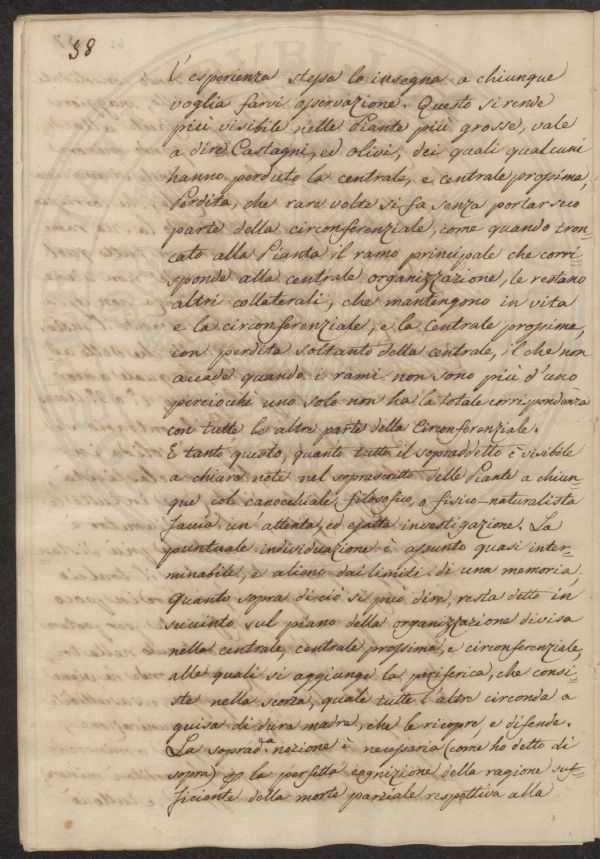 38
L'esperienza stessa lo insegna a chiunque
voglia farvi osservazione. Questo si rende
più visibile nelle Piante più grosse, vale
a dire Castagni, ed olivi, dei quali qualcuni
hanno perduto la centrale, e centrale prossima,
Perdita, che rare volte si fa senza portar seco
parte della circonferenziale, come quando tron=
cato alla Pianta il ramo principale che corri=
sponde alla centrale organizzazione, le restano
altri collaterali, che mantengono in vita
e la circonferenziale, e la Centrale prossima,
con perdita soltanto della centrale, il che non
accade quando i rami non sono più d'uno
perciocchè uno solo non ha la totale corrispondenza
con tutte le altre parte della Circonferenziale.
E tanto questo, quanto tutto il sopraddetto è visibile
a chiare note nel soprascritto delle Piante a chiun=
que col canocchiale filosofico, o fisico-naturalista
faccia un attenta, ed esatta investigazione. La
puntuale individuazione è appunto quasi inter=
minabile, e alieno dai limiti di una memoria.
Quanto sopra di ciò si può dire, resta detto in
succinto sul piano della organizzazione divisa
nella centrale, centrale prossima, e circonferenziale,
alle quali si aggiunge la periferica, che consi=
ste nella scorza, quale tutte l'altre circonda a
guisa di dura madre, che le ricopre, e difende.
La soprad.ª nozione è necessaria (come ho detto di
sopra) la perfetta cognizione della ragione suf=
ficiente della morte parziale respettiva alla